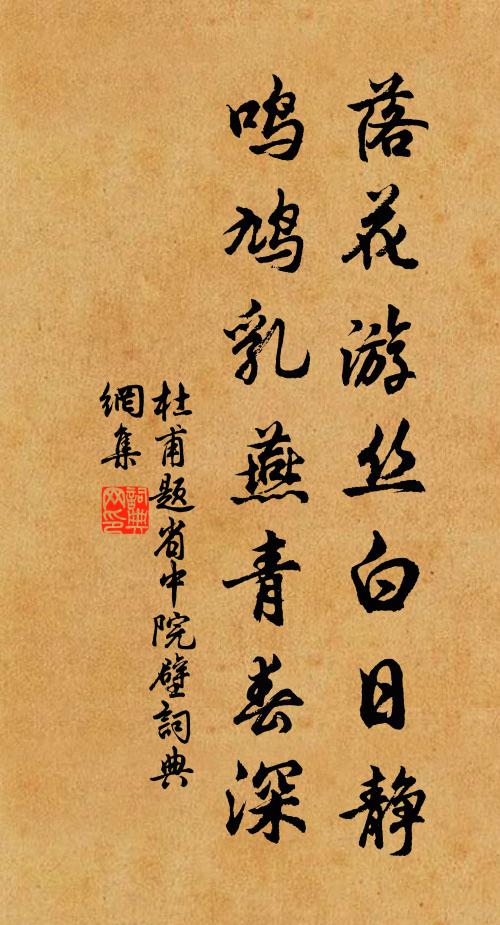 落花游丝白日静
鸣鸠乳燕青春深
杜甫题省中院壁詞典
網集
詞典网印